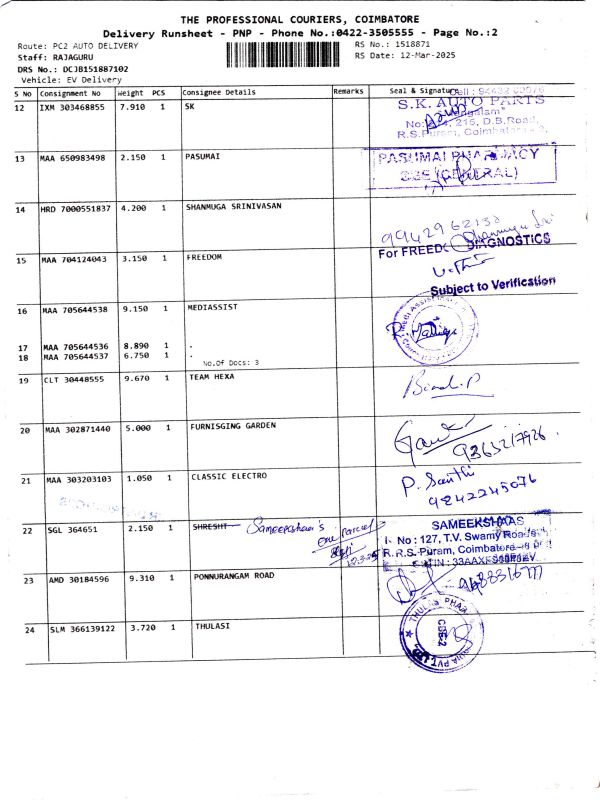 THE PROFESSIONAL COURIERS, COIMBATORE
Delivery Runsheet - PNP - Phone No.:0422-3505555 - Page No.:2
Route: PC2 AUTO DELIVERY
RS No.: 1518871
Staff: RAJAGURU
RS Date: 12-Mar-2025
DRS No.: DCJB151887102
Vehicle: EV Delivery
S No Consignment No Weight PCS Consignee Details Remarks Seal & Signature
12 IXM 303468855 7.910 1 SK
S.K. AUTO PARTS
215, D.B.Road,
R.S.Puram, Coimbatore - 2.
13 MAA 650983498 2.150 1 PASUMAI
PASUMAI PHARMACY
14 HRD 7000551837 4.200 1 SHANMUGA SRINIVASAN
9942962132
15 MAA 704124043 3.150 1 FREEDOM
For FREEDOM DIAGNOSTICS
Subject to Verification
16 MAA 705644538 9.150 1 MEDIASSIST
17 MAA 705644536 8.890 1 .
18 MAA 705644537 6.750 1 .
No.Of Docs: 3
19 CLT 30448555 9.670 1 TEAM HEXA
20 MAA 302871440 5.000 1 FURNISGING GARDEN
9365217926
21 MAA 303203103 1.050 1 CLASSIC ELECTRO
P. Santhi
9842245076
22 SGL 364651 2.150 1 SHRESHT Sameekshaa's
one parcel
SAMEEKSHAAS
No : 127, T.V. Swamy Road
R.S.Puram, Coimbatore
23 AMD 30184596 9.310 1 PONNURANGAM ROAD
9488316777
24 SLM 366139122 3.720 1 THULASI